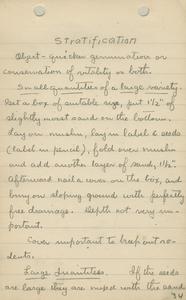 Stratification
Object - quicken germination or
conservation of vitality or both.
Small quantities of a large variety.
Get a box of suitable size, put 1½"
slightly moist sand on the bottom.
Lay on muslin, lay in label & seeds
(label in pencil), fold over muslin
and add another layer of sand, 1½".
Afterward nail a cover on the box, and
bury on sloping ground with perfectly
free drainage. Depth not very im-
portant.
Cover important to keep out ro-
dents.
Large quantities. If the seeds
are large they are mixed with the sand